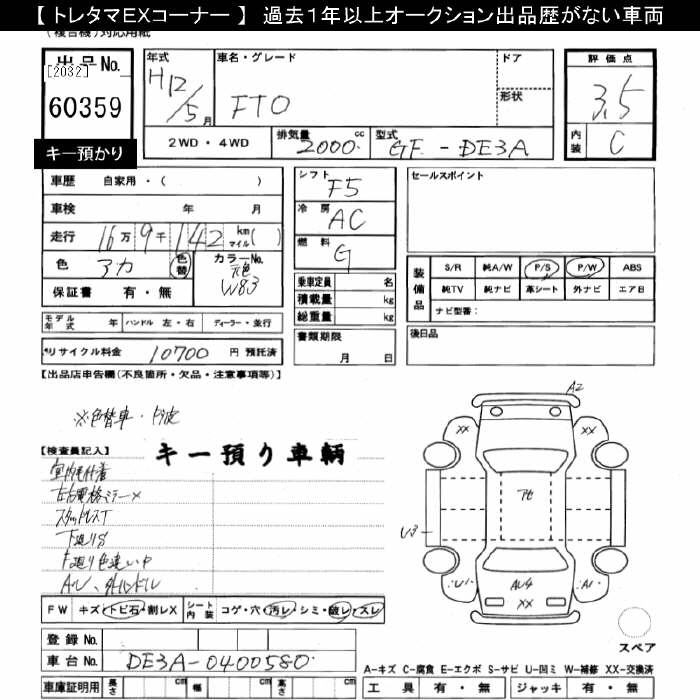 【 トレタマEXコーナー 】 過去1年以上オークション出品歴がない車両
(複合機)対応用紙
出品No.
[2032]
60359
キー預かり
年式
H12/5月
車名・グレード
FTO
ドア
形状
評価点
3.5
内装
C
2WD・4WD
排気量
2000 cc
型式
GF-DE3A
車歴 自家用・( )
車検 年 月
走行 16万9千142 km マイル( )
色 アカ
色替
カラーNo.
元色
W83
保証書 有・無
シフト
F5
冷房
AC
燃料
G
乗車定員 名
積載量 kg
総重量 kg
セールスポイント
装備品
S/R 純A/W P/S P/W ABS
純TV 純ナビ 革シート 外ナビ エアB
ナビ型番:
モデル年式 年 ハンドル 左・右 ディーラー・並行
リサイクル料金 10700 円 預託済
書類期限
月 日
後日品
【出品店申告欄(不良箇所・欠品・注意事項等)】
※色替車・
【検査員記入】
キー預り車輌
室内
左右電格ミラー×
下廻りサ
下廻り色違い
FW キズ・トビ石・割レX
シート内装 コゲ・穴・汚レ・シミ・破レ・スレ
登録No.
車台No. DE3A-0400580
車庫証明用 長さ cm 幅 cm 高さ cm
A2
XX
XX
U3
U1
AU4
XX
A1
スペア
A-キズ C-腐食 E-エクボ S-サビ U-凹ミ W-補修 XX-交換済
工具 有・無 ジャッキ 有・無